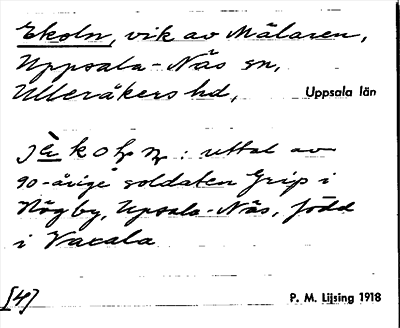 Ekoln, vik av Mälaren,
Uppsala-Näs sn,
Ulleråkers hd, Uppsala län
: uttal av
90-årige soldaten Grip i
Högby, Upsala-Näs, född
i Vaxala
[4]
P. M. Lijsing 1918